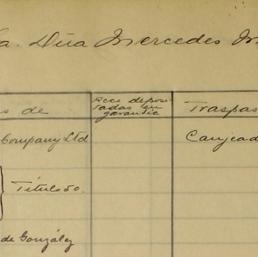 a. Dña Mercedes M
s de
Accs deposi-
tadas en
garantía
Traspas
Company Ltd
Canjead
Título 50
de González